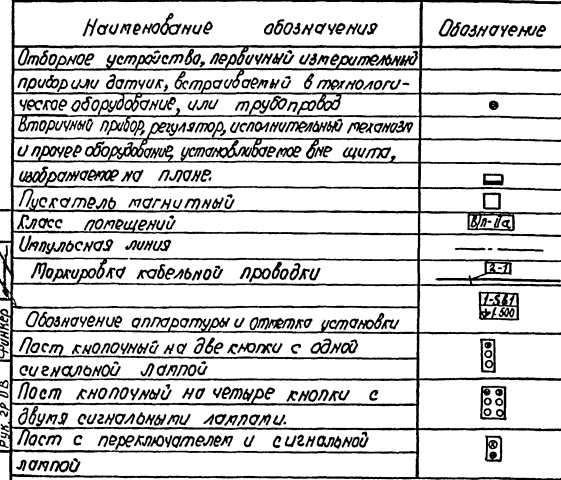 Наименование обозначения Обозначение
Отборное устройство, первичный измерительный
прибор или датчик, встраиваемый в технологи-
ческое оборудование, или трубопровод
Вторичный прибор, регулятор, исполнительный механизм
и прочее оборудование, установливаемое вне щита,
изображаемое на плане.
Пускатель магнитный
Класс помещений В/п-IIа
Импульсная линия
Маркировка кабельной проводки 2-1
1-5.61
Обозначение аппаратуры и отметка установки 1.500
Пост кнопочный на две кнопки с одной
сигнальной лампой
Пост кнопочный на четыре кнопки с
двумя сигнальными лампами.
Пост с переключателем и сигнальной
лампой
Рук. гр ОВ Финкер